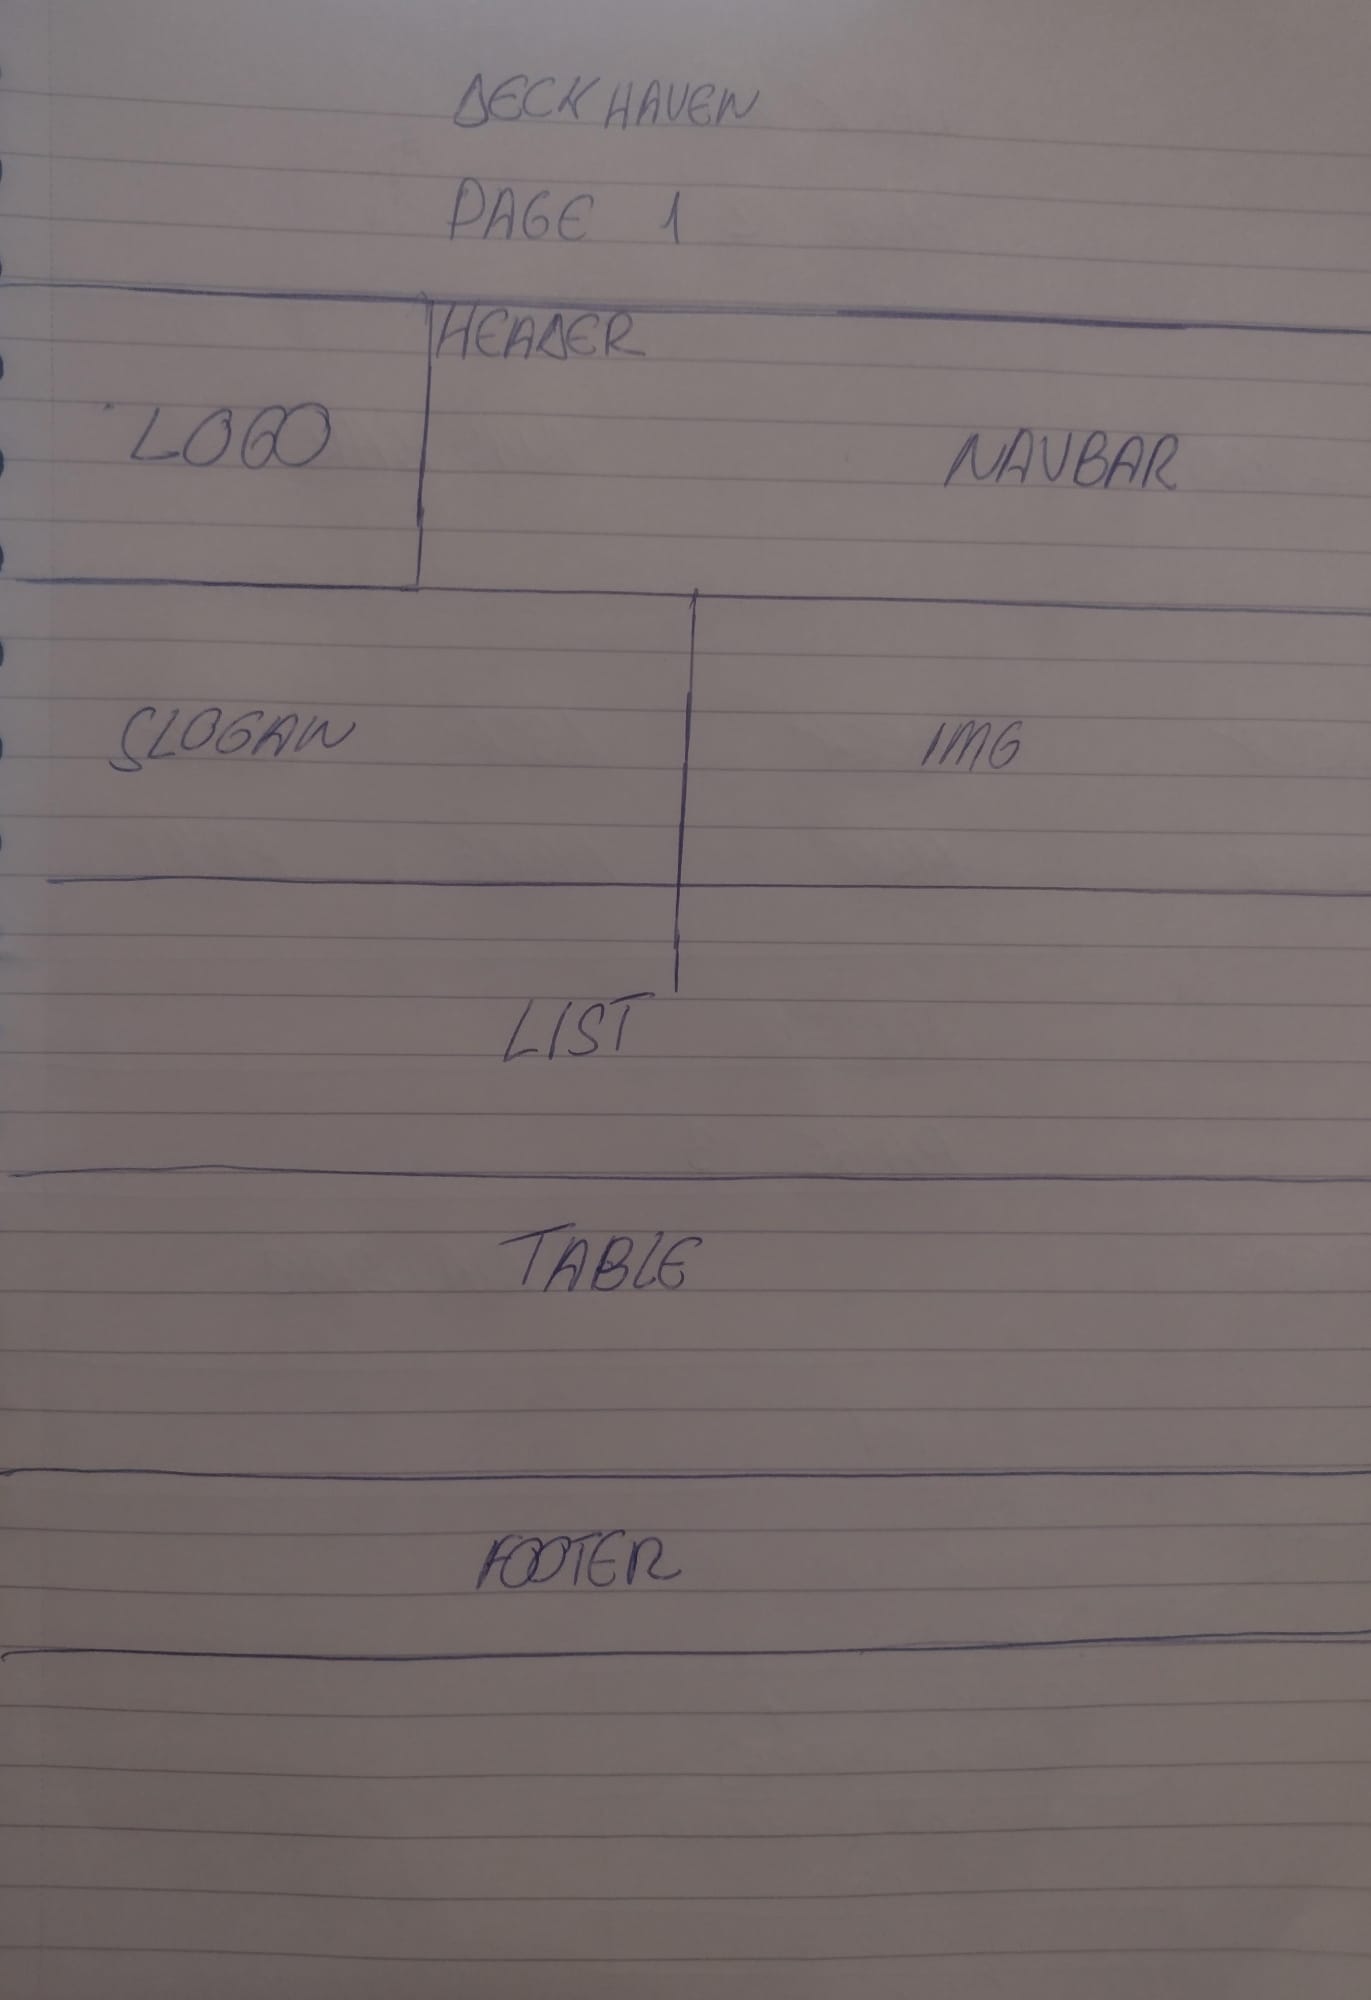 DECK HAVEN
PAGE 1
HEADER
LOGO
NAVBAR
SLOGAN
IMG
LIST
TABLE
FOOTER